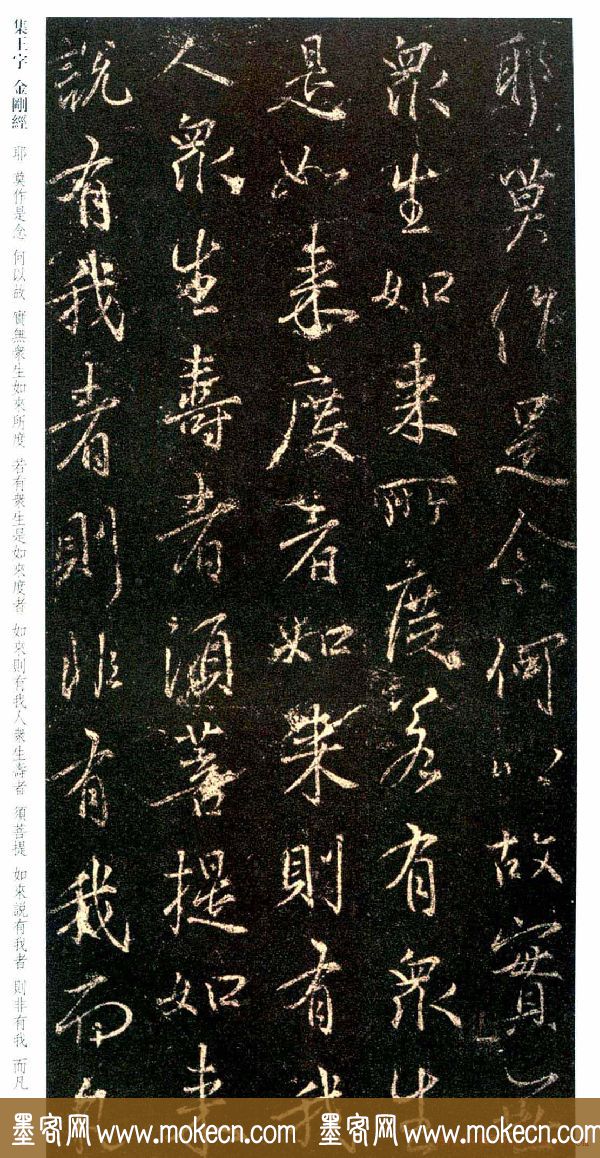 耶莫作是念何以故實無
衆生如来所度若有衆生
是如来度者如来則有我
人衆生壽者須菩提如来
說有我者則非有我而凡
集王字 金剛經 耶 莫作是念 何以故 實無衆生如來所度 若有衆生是如來度者 如來則有我人衆生壽者 須菩提 如來説有我者 則非有我 而凡
墨客网 www.mokecn.com 墨客网 www.mokecn.com